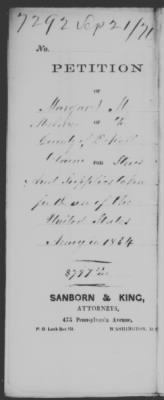 7292 Sep 21/71
No.
PETITION
OF
Margaret M
of the
County of
Claim FOR Stores
And Supplies taken
for the use of the
United States
Army in 1864
SANBORN & KING,
ATTORNEYS,
475 Pennsylvania Avenue,
P. O. Lock Box
WASHINGTON, D.C.